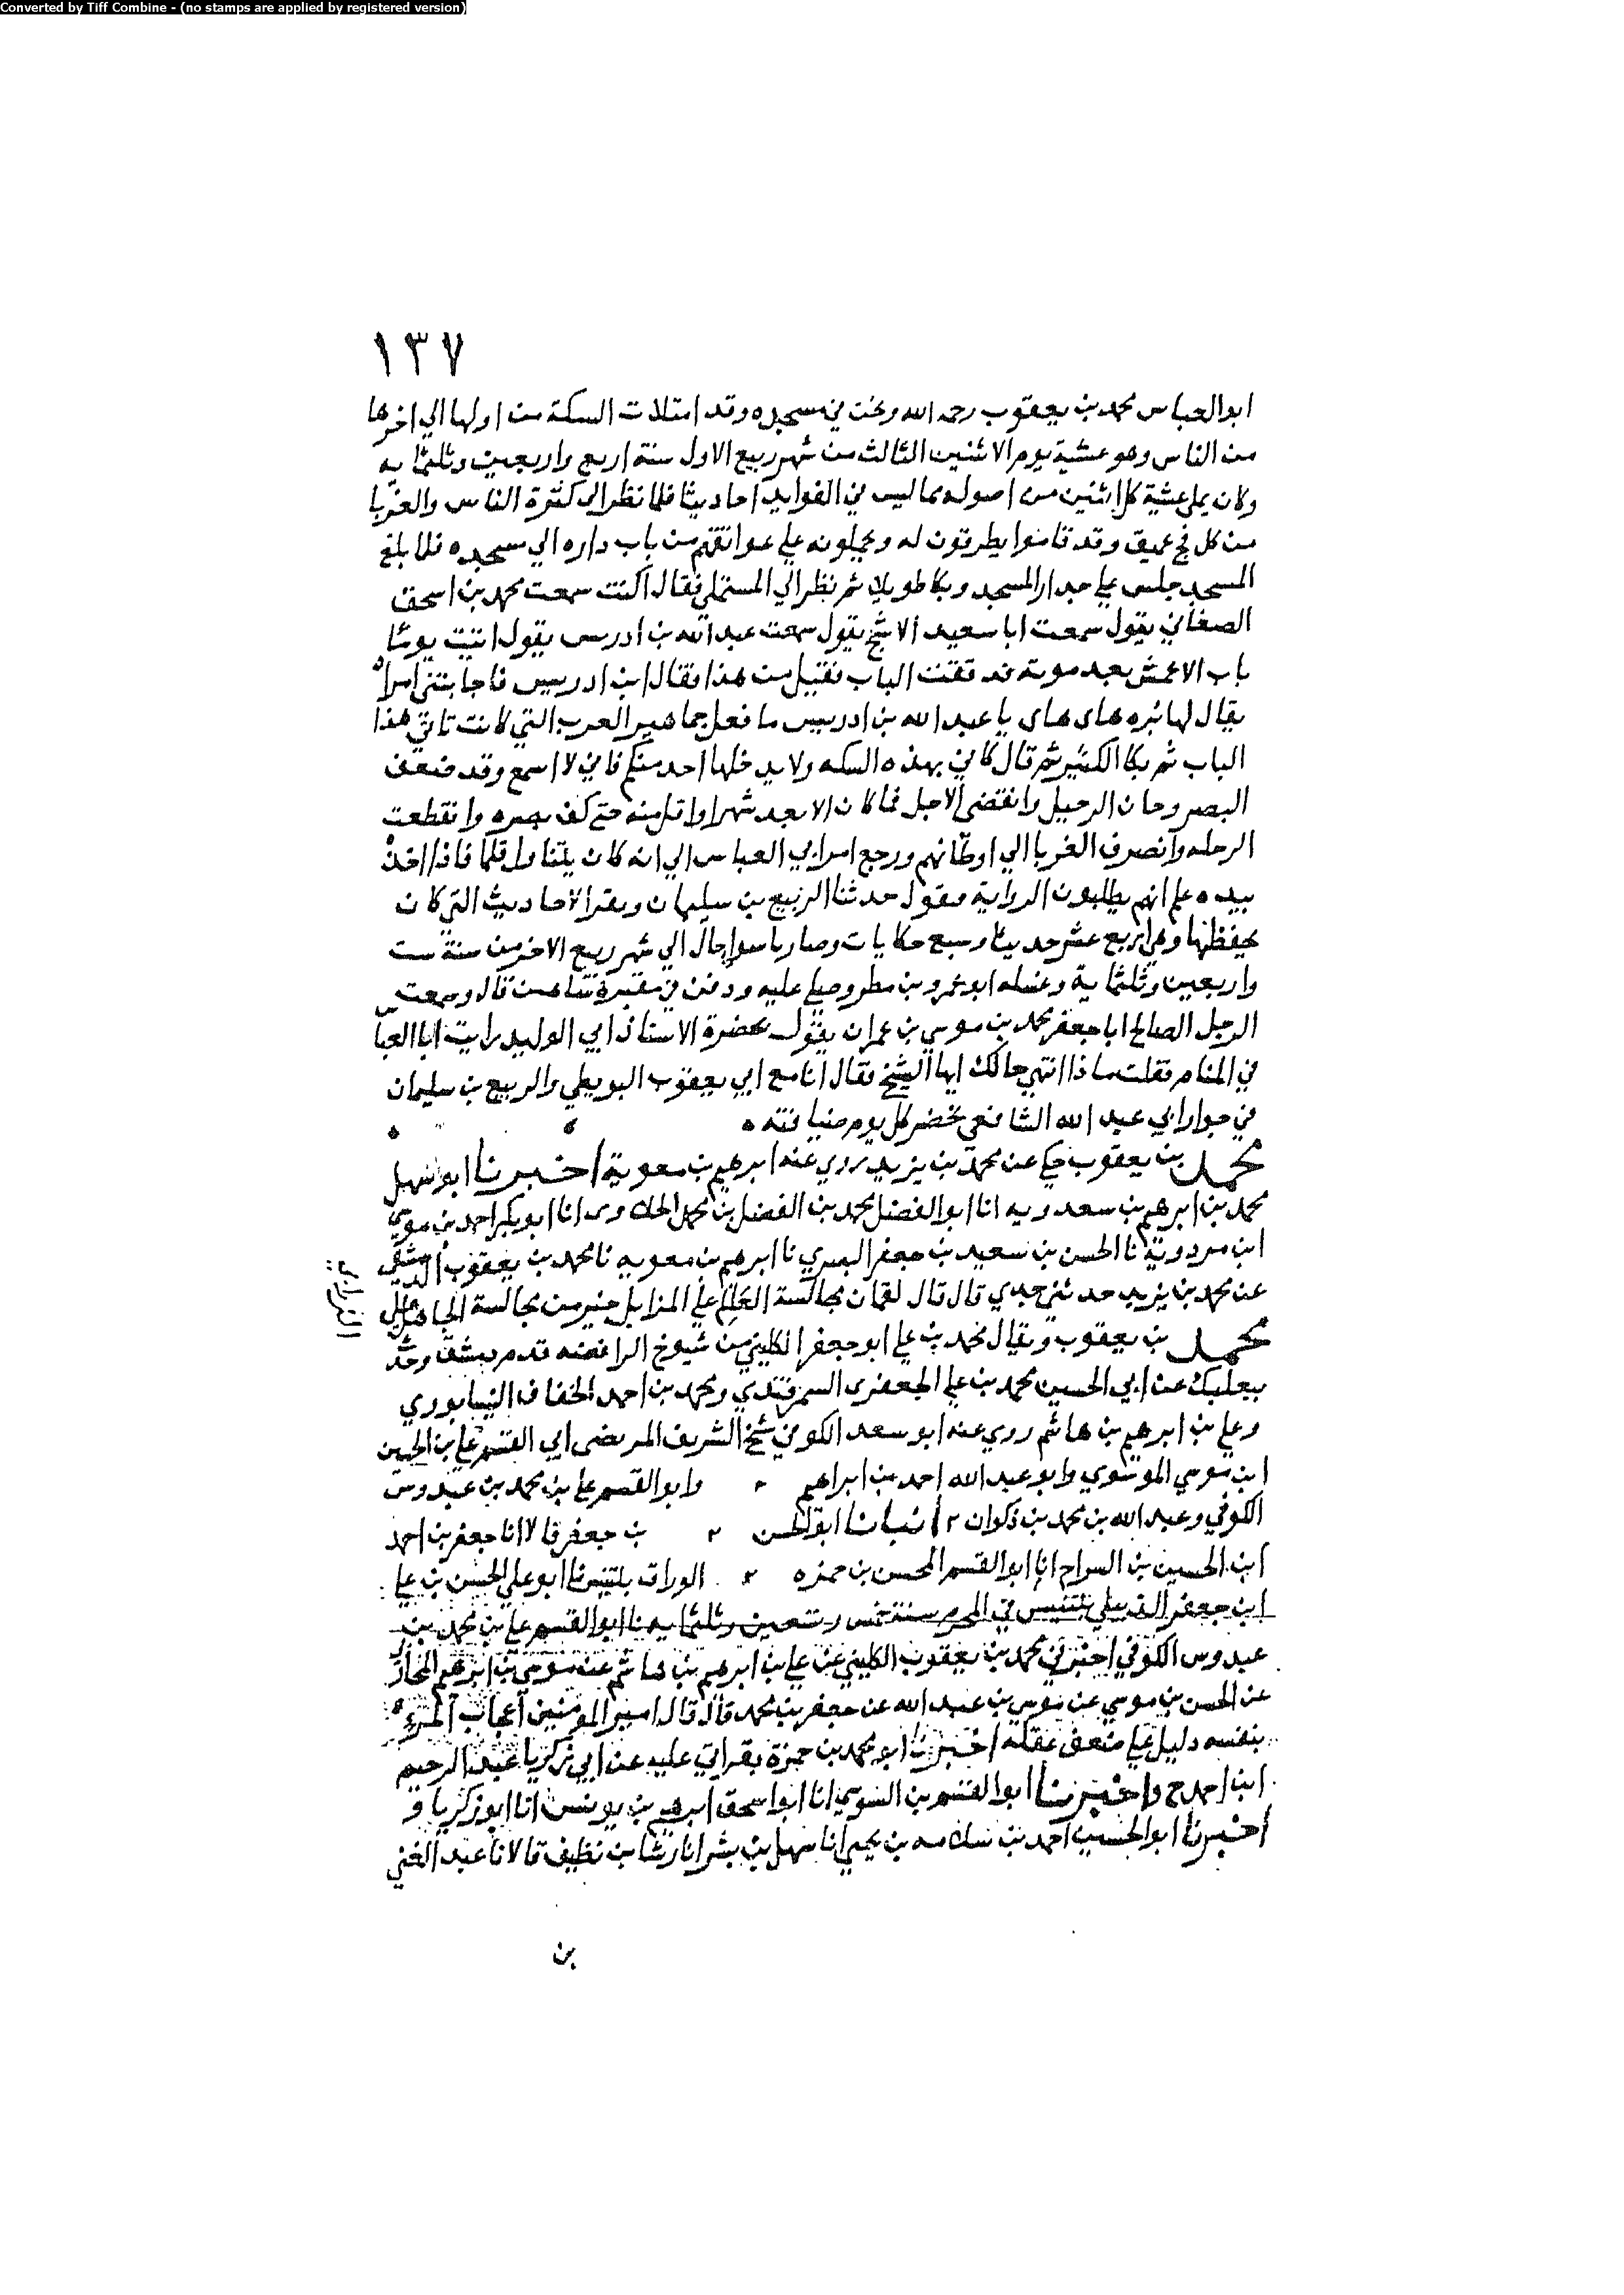 Converted by Tiff Combine - (no stamps are applied by registered version)
١٣٧
ابو العباس محمد بن يعقوب رحمه الله ونحن في مسجده وقد امتلات السكة من اولها الي اخرها
من الناس وهو عشية يوم الاثنين الثالث من شهر ربيع الاول سنة اربع واربعين وثلثمايه
وكان يملي عشية كل اثنين من اصوله مما ليس في الفوايد احاديثا فلما نظر الى كثرة الناس والغربا
من كل فج عميق وقد قاموا يطرقون له ويحملونه علي عواتقهم من باب داره الي مسجده فلما بلغ
المسجد جلس علي جدار المسجد وبكا طويلا ثم نظر الي المستملي فقال اكتب سمعت محمد بن اسحق
الصغاني يقول سمعت ابا سعيد الاشج يقول سمعت عبد الله بن ادريس يقول اتيت يوما
باب الاعمش بعد موته فدققت الباب فقيل من هذا فقال ابن ادريس فاجابتني امراة
يقال لها بره هاى هاى يا عبد الله بن ادريس ما فعل جماهير العرب التي كانت تاتي هذا
الباب ثم بكا الكثير ثم قال كاني بهذه السكه ولا يدخلها احد منكم فاني لا اسمع وقد ضعف
البصر وحان الرحيل وانقضى الاجل فما كان الا بعد شهر او اقل منه حتى كف بصره وانقطعت
الرحله وانصرف الغربا الي اوطانهم ورجع امر ابي العباس الي انه كان يناول قلما فاذا اخذه
بيده علم انهم يطلبون الرواية فيقول حدثنا الربيع بن سليمان ويقرا الاحاديث التي كان
يحفظها وهي اربع عشر حديثا وسبع حكايات وصار باسوا حال الي شهر ربيع الاخر من سنة ست
واربعين وثلثماية وغسله ابو عمرو بن مطر وصلي عليه ودفن في مقبرة شاهين قال وسمعت
الرجل الصالح ابا جعفر محمد بن موسي بن عمران يقول بحضرة الاستاذ ابي الوليد رايت ابا العباس
في المنام فقلت ماذا انتهي حالك ايها الشيخ فقال انا مع ابي يعقوب البويطي والربيع بن سليمان
في جوار ابي عبد الله الشافعي نحضر كل يوم ضيافته ه
محمد بن يعقوب حكي عن محمد بن يزيد روي عنه ابرهيم بن معوية اخبرنا ابو سهل
محمد بن ابرهيم بن سعدويه انا ابو الفضل محمد بن الفضل بن محمد الحلاوى انا ابو بكر احمد بن موسي
ابن مردوية نا الحسن بن سعيد بن جعفر البصري نا ابرهيم بن معويه نا محمد بن يعقوب الدمشقي
عن محمد بن يزيد حدثني جدي قال قال لقمان مجالسة العالم علي المزابل خير من مجالسة الجاهل علي
الزرابي
محمد بن يعقوب ويقال محمد بن علي ابو جعفر الكليني من شيوخ الرافضه قدم دمشق وحدث
ببعلبك عن ابي الحسين محمد بن علي الجعفرى السمرقندي ومحمد بن احمد الخفاف النيسابوري
وعلي بن ابرهيم بن هاشم روي عنه ابو سعد الكوفي شيخ الشريف المرتضى ابي القسم علي بن الحسين
ابن موسي الموسوي وابو عبد الله احمد بن ابراهيم وابو القسم علي بن محمد بن عبدوس
الكوفي وعبد الله بن محمد بن ذكوان انبانا ابو الحسن بن جعفر قالا انا جعفر بن احمد
ابن الحسين بن السراج انا ابو القسم المحسن بن حمزه الوراق بتنيس نا ابو علي الحسن بن علي
ابن جعفر الديبلي بتنيس في المحرم سنة خمس وتسعين وثلثمايه نا ابو القسم علي بن محمد بن
عبدوس الكوفي اخبرني محمد بن يعقوب الكليني عن علي بن ابرهيم بن هاشم عن موسي بن ابرهيم المحاربي
عن الحسن بن موسي عن موسي بن عبد الله عن جعفر بن محمد قال قال امير المومنين اعجاب المرء
بنفسه دليل علي ضعف عقله اخبرنا ابو محمد بن حمزة بقراتي عليه عن ابي زكريا عبد الرحيم
ابن احمد ح واخبرنا ابو القسم بن السوسي انا ابو اسحق ابرهيم بن يونس انا ابو زكريا و
اخبرنا ابو الحسين احمد بن سلامه بن يحيي انا سهل بن بشر انا رشا بن نظيف قالا نا عبد الغني
بن